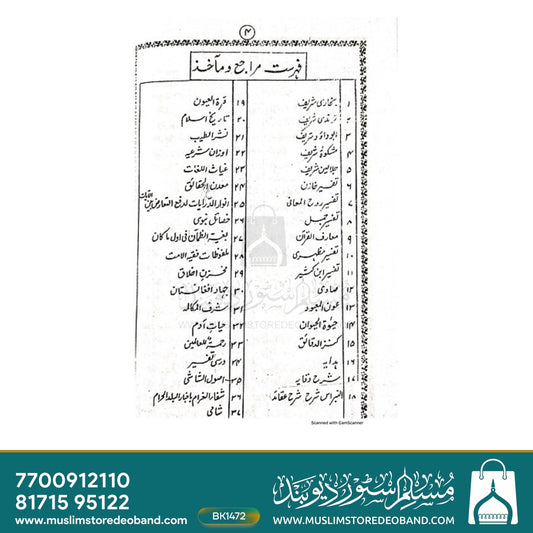 ۴
فہرست مراجع و مآخذ
۱ بخاری شریف
۲ ترمذی شریف
۳ ابوداؤد شریف
۴ مشکوٰۃ شریف
۵ جلالین شریف
۶ تفسیر خازن
۷ تفسیر روح المعانی
۸ تفسیر جمل
۹ معارف القرآن
۱۰ تفسیر مظہری
۱۱ تفسیر ابن کثیر
۱۲ صاوی
۱۳ عون المعبود
۱۴ حیٰوۃ الحیوان
۱۵ کنز الدقائق
۱۶ ہدایہ
۱۷ شرح وقایہ
۱۸ النبراس شرح شرح عقائد
۱۹ قرۃ العیون
۲۰ تاریخ اسلام
۲۱ نشر الطیب
۲۲ اوزان شرعیہ
۲۳ غیاث اللغات
۲۴ معدن الحقائق
۲۵ انوار الدرایات لدفع التعارض بین الآیات
۲۶ خصائل نبوی
۲۷ بغیۃ الظمآن فی اول ما کان
۲۸ ملفوظات فقیہ الامت
۲۹ مخزن اخلاق
۳۰ جہاد افغانستان
۳۱ شرف المکالمہ
۳۲ حیات آدم
۳۳ رحمۃ للعالمین
۳۴ درسی تفسیر
۳۵ اصول الشاشی
۳۶ شفاء الغرام باخبار البلد الحرام
۳۷ شامی
مسلم سٹور دیوبند
WWW.MUSLIMSTOREDEOBAND.COM
Scanned with CamScanner
7700912110
81715 95122
www.muslimstoredeoband.com
BK1472
مسلم سٹور دیوبند
WWW.MUSLIMSTOREDEOBAND.COM